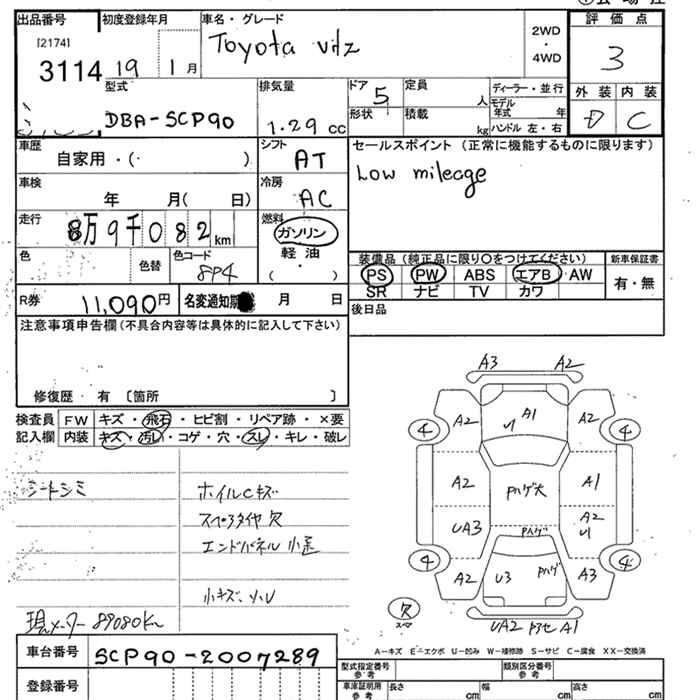 出品番号 初度登録年月 車名・グレード 評価点
[2174]
3114 19 1月 Toyota vitz 2WD・4WD 3
型式 排気量 ドア 定員 ディーラー・並行 外装 内装
DBA-SCP90 1.29 cc 5 人 モデル年式 年 D C
形状 積載 kg ハンドル 左・右
車歴 シフト セールスポイント (正常に機能するものに限ります)
自家用・( ) AT Low mileage
車検 冷房
年 月( 日) AC
走行 燃料
8万9千082 km ガソリン
色 色替 色コード 軽油 装備品 (純正品に限り○をつけてください) 新車保証書
8P4 ( ・ ) PS PW ABS エアB AW 有・無
SR ナビ TV カワ
R券 11,090円 名変通知期 月 日 後日品
注意事項申告欄(不具合内容等は具体的に記入して下さい)
修復歴・有 〔箇所 〕
検査員 FW キズ・飛石・ヒビ割・リペア跡・×要
記入欄 内装 キズ・汚レ・コゲ・穴・スレ・キレ・破レ
シートシミ ホイルCキズ
スペアタイヤ欠
エンドパネル小歪
小キズ、小U
現メーター 89080Km
A3 A2
A2 A1 U A2
4 4
A2 PハゲX A1
UA3 Pハゲ A2 U
4 4
A2 U3 Pハゲ A3
欠
スペア
UA2 A1
A-キズ E-エクボ U-凹み W-補修跡 S-サビ C-腐食 XX-交換済
車台番号 SCP90-2007289
登録番号
型式指定番号参考 類別区分番号参考
車庫証明用参考 長さ cm 幅 cm 高さ cm